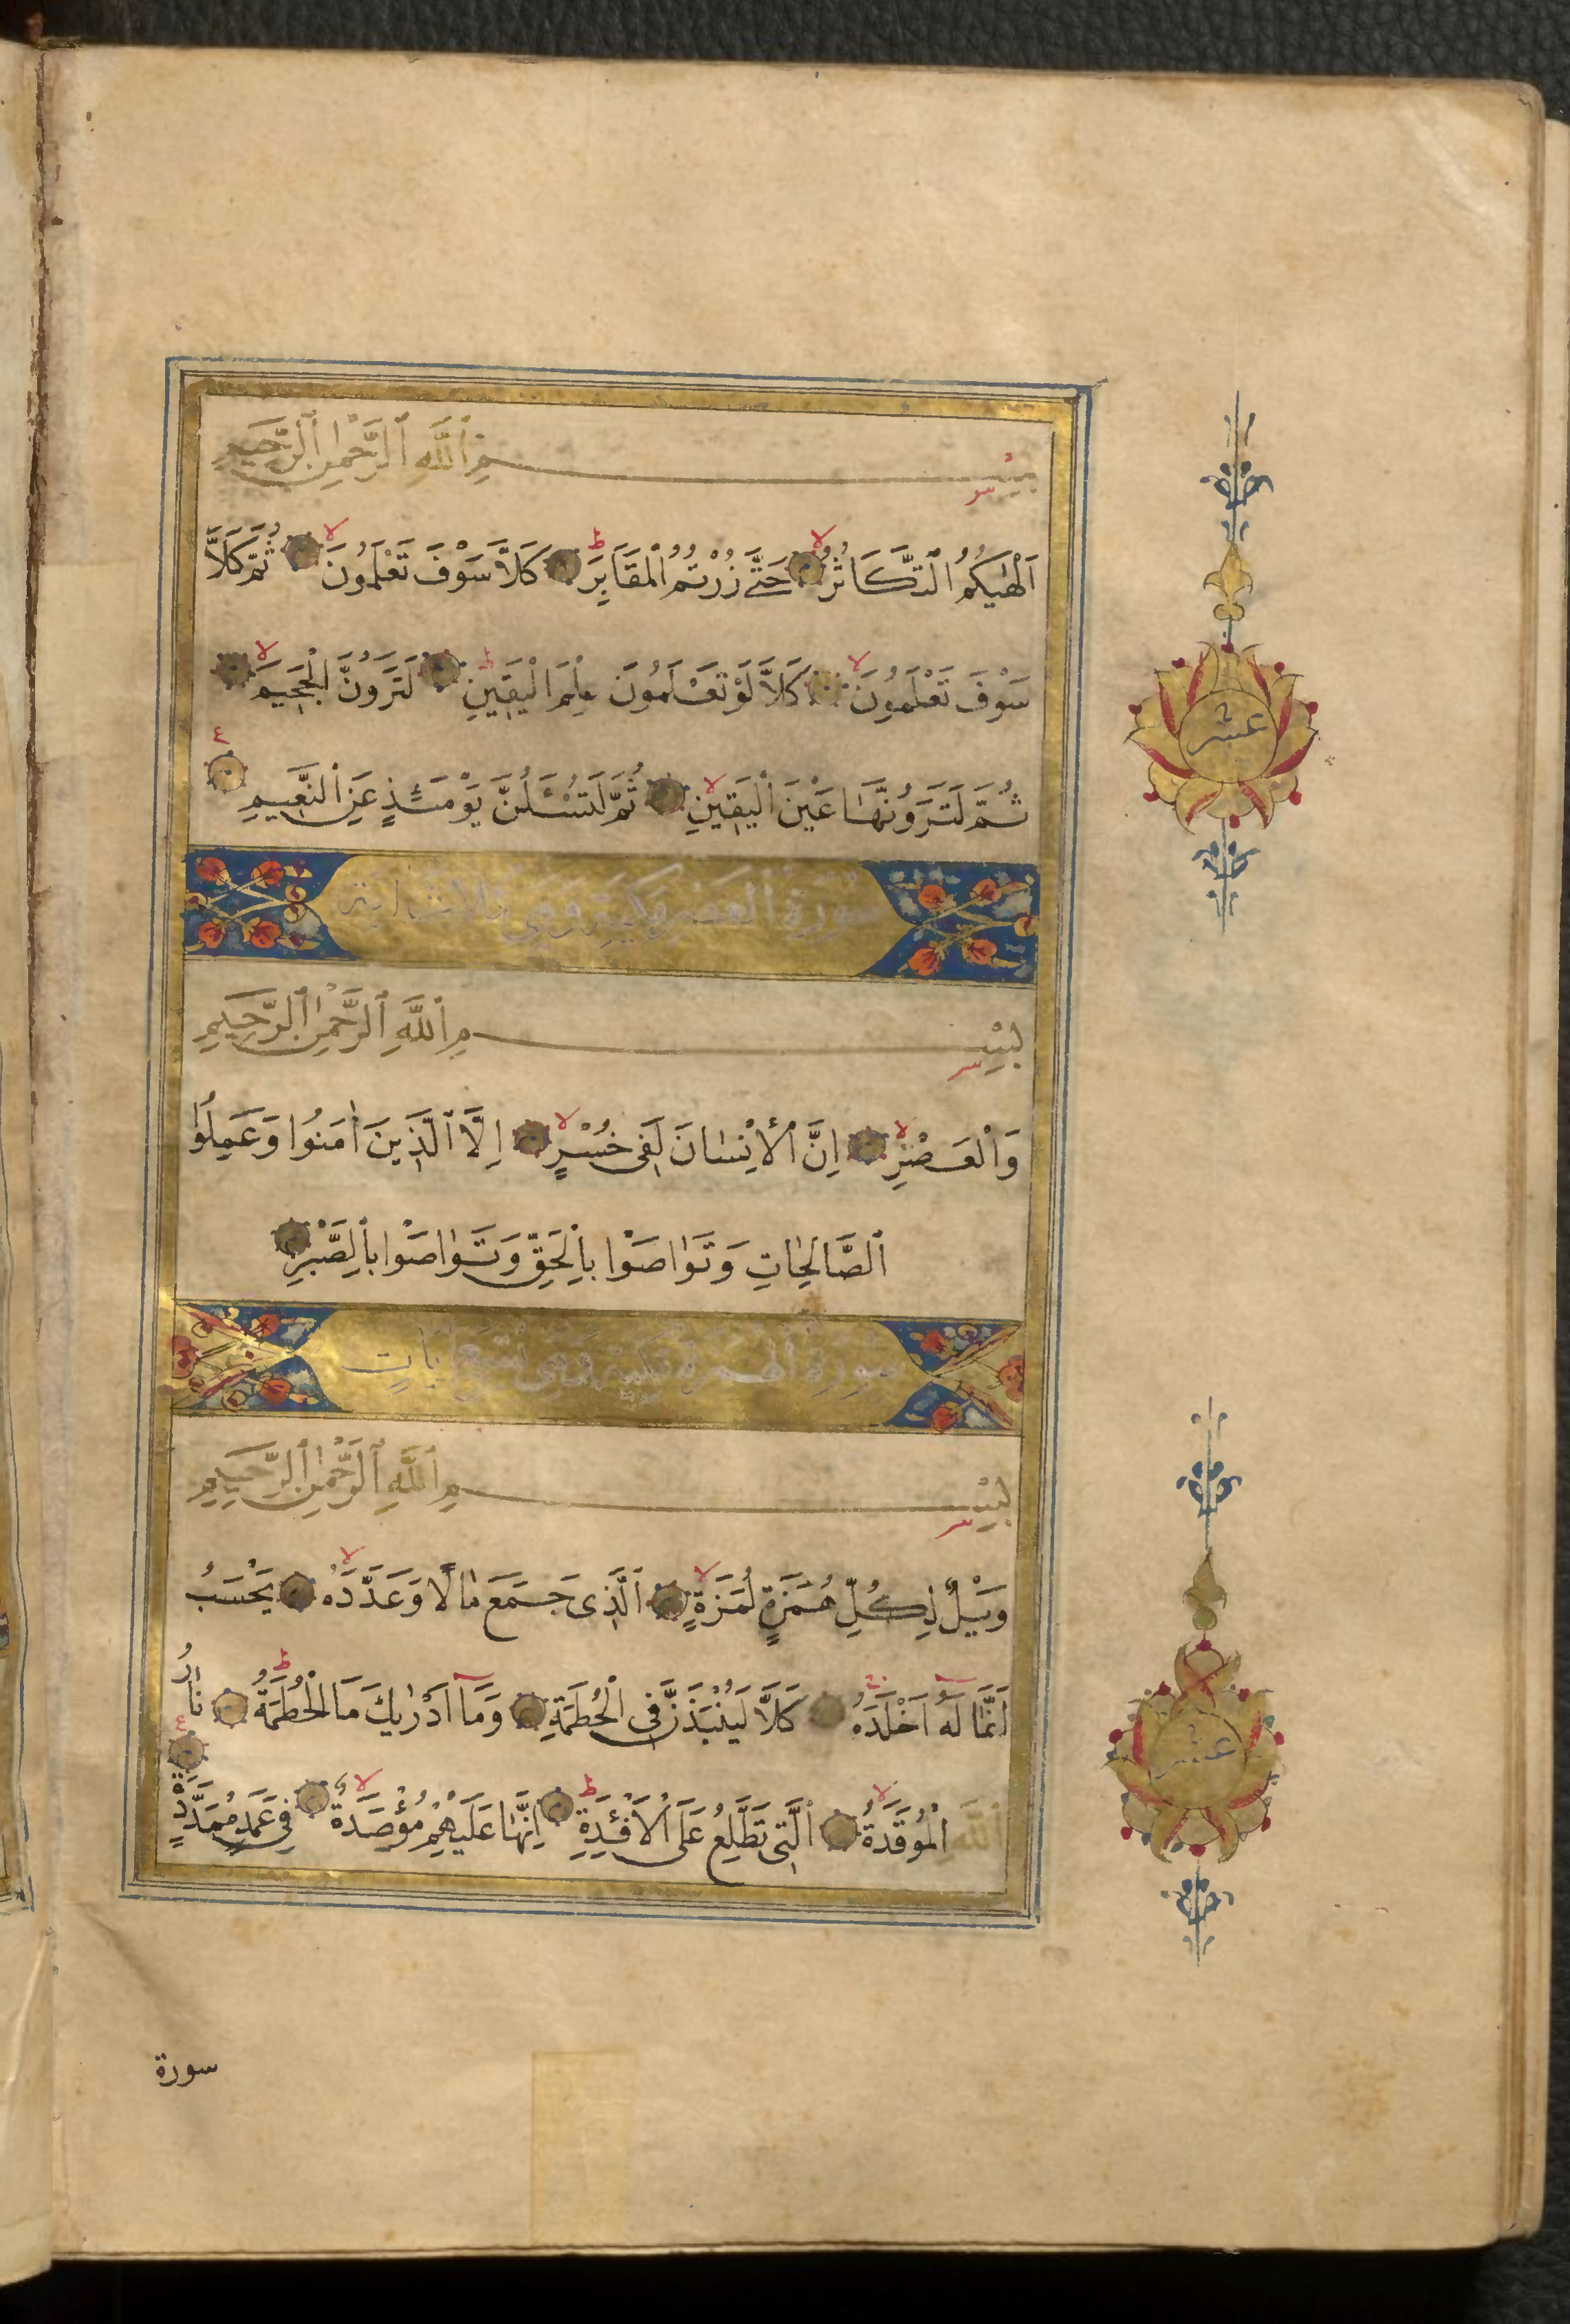 بِسْمِ ٱللَّهِ ٱلرَّحْمٰنِ ٱلرَّحِيمِ
اَلْهٰيكُمُ ٱلتَّكَاثُرُ لا حَتّٰى زُرْتُمُ ٱلْمَقَابِرَ ط كَلاَّ سَوْفَ تَعْلَمُونَ لا ثُمَّ كَلاَّ
سَوْفَ تَعْلَمُونَ لا كَلاَّ لَوْ تَعْلَمُونَ عِلْمَ الْيَقِينِ ط لَتَرَوُنَّ الْجَحِيمَ لا
ثُمَّ لَتَرَوُنَّهَا عَيْنَ ٱلْيَقِينِ لا ثُمَّ لَتُسْـَٔلُنَّ يَوْمَئِذٍ عَنِ ٱلنَّعِيمِ ع
عشر
سورة العصر مكية وهي ثلاث اية
بِسْمِ ٱللَّهِ ٱلرَّحْمٰنِ ٱلرَّحِيمِ
وَٱلْعَصْرِ لا اِنَّ ٱلْاِنْسَانَ لَفِى خُسْرٍ لا اِلَّا ٱلَّذِينَ اٰمَنُوا وَعَمِلُوا
ٱلصَّالِحَاتِ وَتَوَاصَوْا بِٱلْحَقِّ وَتَوَاصَوْا بِٱلصَّبْرِ
سورة الهمزة مكية وهي تسع ايات
بِسْمِ ٱللَّهِ ٱلرَّحْمٰنِ ٱلرَّحِيمِ
وَيْلٌ لِكُلِّ هُمَزَةٍ لُمَزَةٍ لا ٱلَّذِى جَمَعَ مَالًا وَعَدَّدَهُ لا يَحْسَبُ
اَنَّ مَالَهُ اَخْلَدَهُ كَلَّا لَيُنْبَذَنَّ فِى الْحُطَمَةِ وَمَآ اَدْرٰيكَ مَا الْحُطَمَةُ ط نَارُ
ٱللّٰهِ الْمُوقَدَةُ لا ٱلَّتِى تَطَّلِعُ عَلَى ٱلْاَفْـِٔدَةِ ط اِنَّهَا عَلَيْهِمْ مُؤْصَدَةٌ لا فِى عَمَدٍ مُمَدَّدَةٍ ع
عشر
سورة